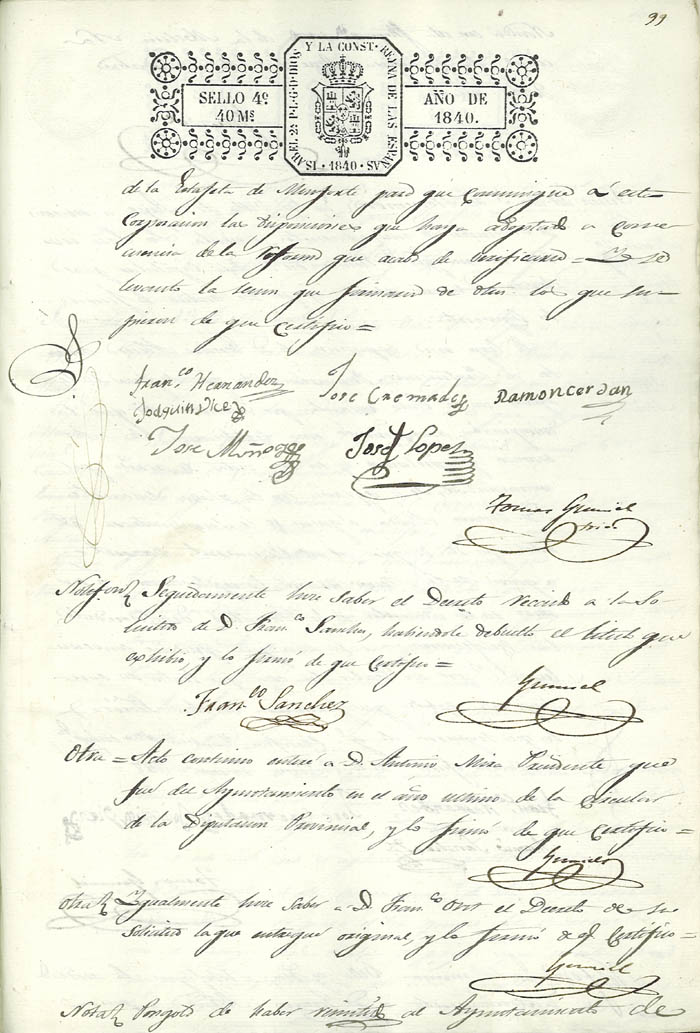 99
ISABEL 2ª P.L.G.D.DIOS Y LA CONST. REYNA DE LAS ESPAÑAS
1840
SELLO 4º
40 Mˢ
AÑO DE
1840.
de la Estafeta de para que comunique á esta
Corporacion las disposiciones que haya adoptado a conse
cuencia de la que acaba de verificarse = Y se
levanto la sesion que firmaron de otros los que su-
pieron de que Certifico =
Fran.ᶜᵒ Hernandez
Jose Cremades
Ramon Cerdan
Joaquin Vicedo
Jose Muñoz
José Lopez
Tomas
Seguidamente hice saber el Decreto recaido a la So
licitud de D. Fran.ᶜᵒ Sanchez, habiendole debuelto el titulo que
exhibio, y lo firmó de que Certifico =
Fran.ᶜᵒ Sanchez
Otra = Acto continuo enteré a D. Antonio Mira Presidente que
fué del Ayuntamiento en el año ultimo de la circular
de la Diputacion Provincial, y lo firmó de que Certifico =
Otra Igualmente hice saber a D. Fran.ᶜᵒ el Decreto de su
Solicitud la que entregué original, y lo firmó de q.ᵉ Certifico =
Nota Pongola de haber remitido al Ayuntamiento de